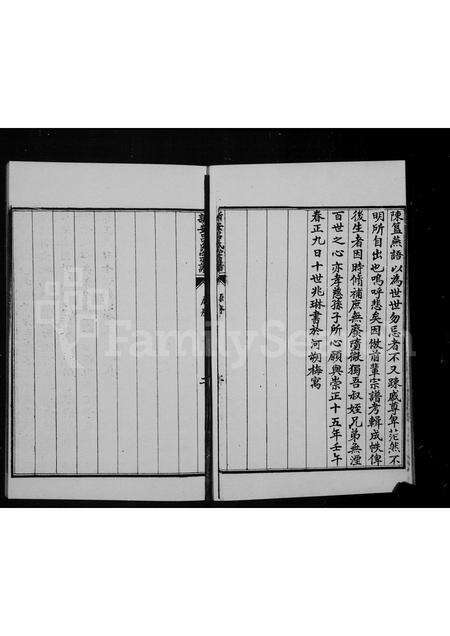 陳簋燕語以為世世勿忌者不又踈戚尊卑茫然不
明所自出也嗚呼悲矣因倣前輩宗譜考輯成帙俾
後生者因時脩補庶無廢墮微獨吾叔姪兄弟無湮
百世之心亦孝慈孫子所心願與崇正十五年壬午
春正九日十世兆琳書於河朔梅寓
FamilySearch